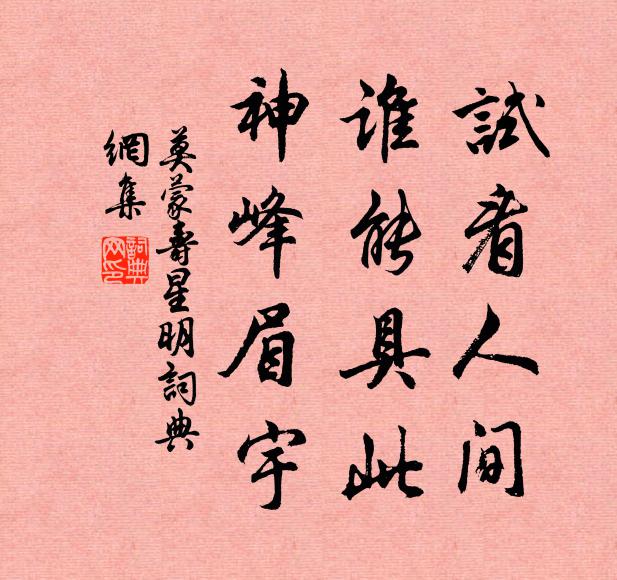 試看人間
誰能具此
神峰眉宇
莫蒙壽星明詞典
網集
詞典
网印